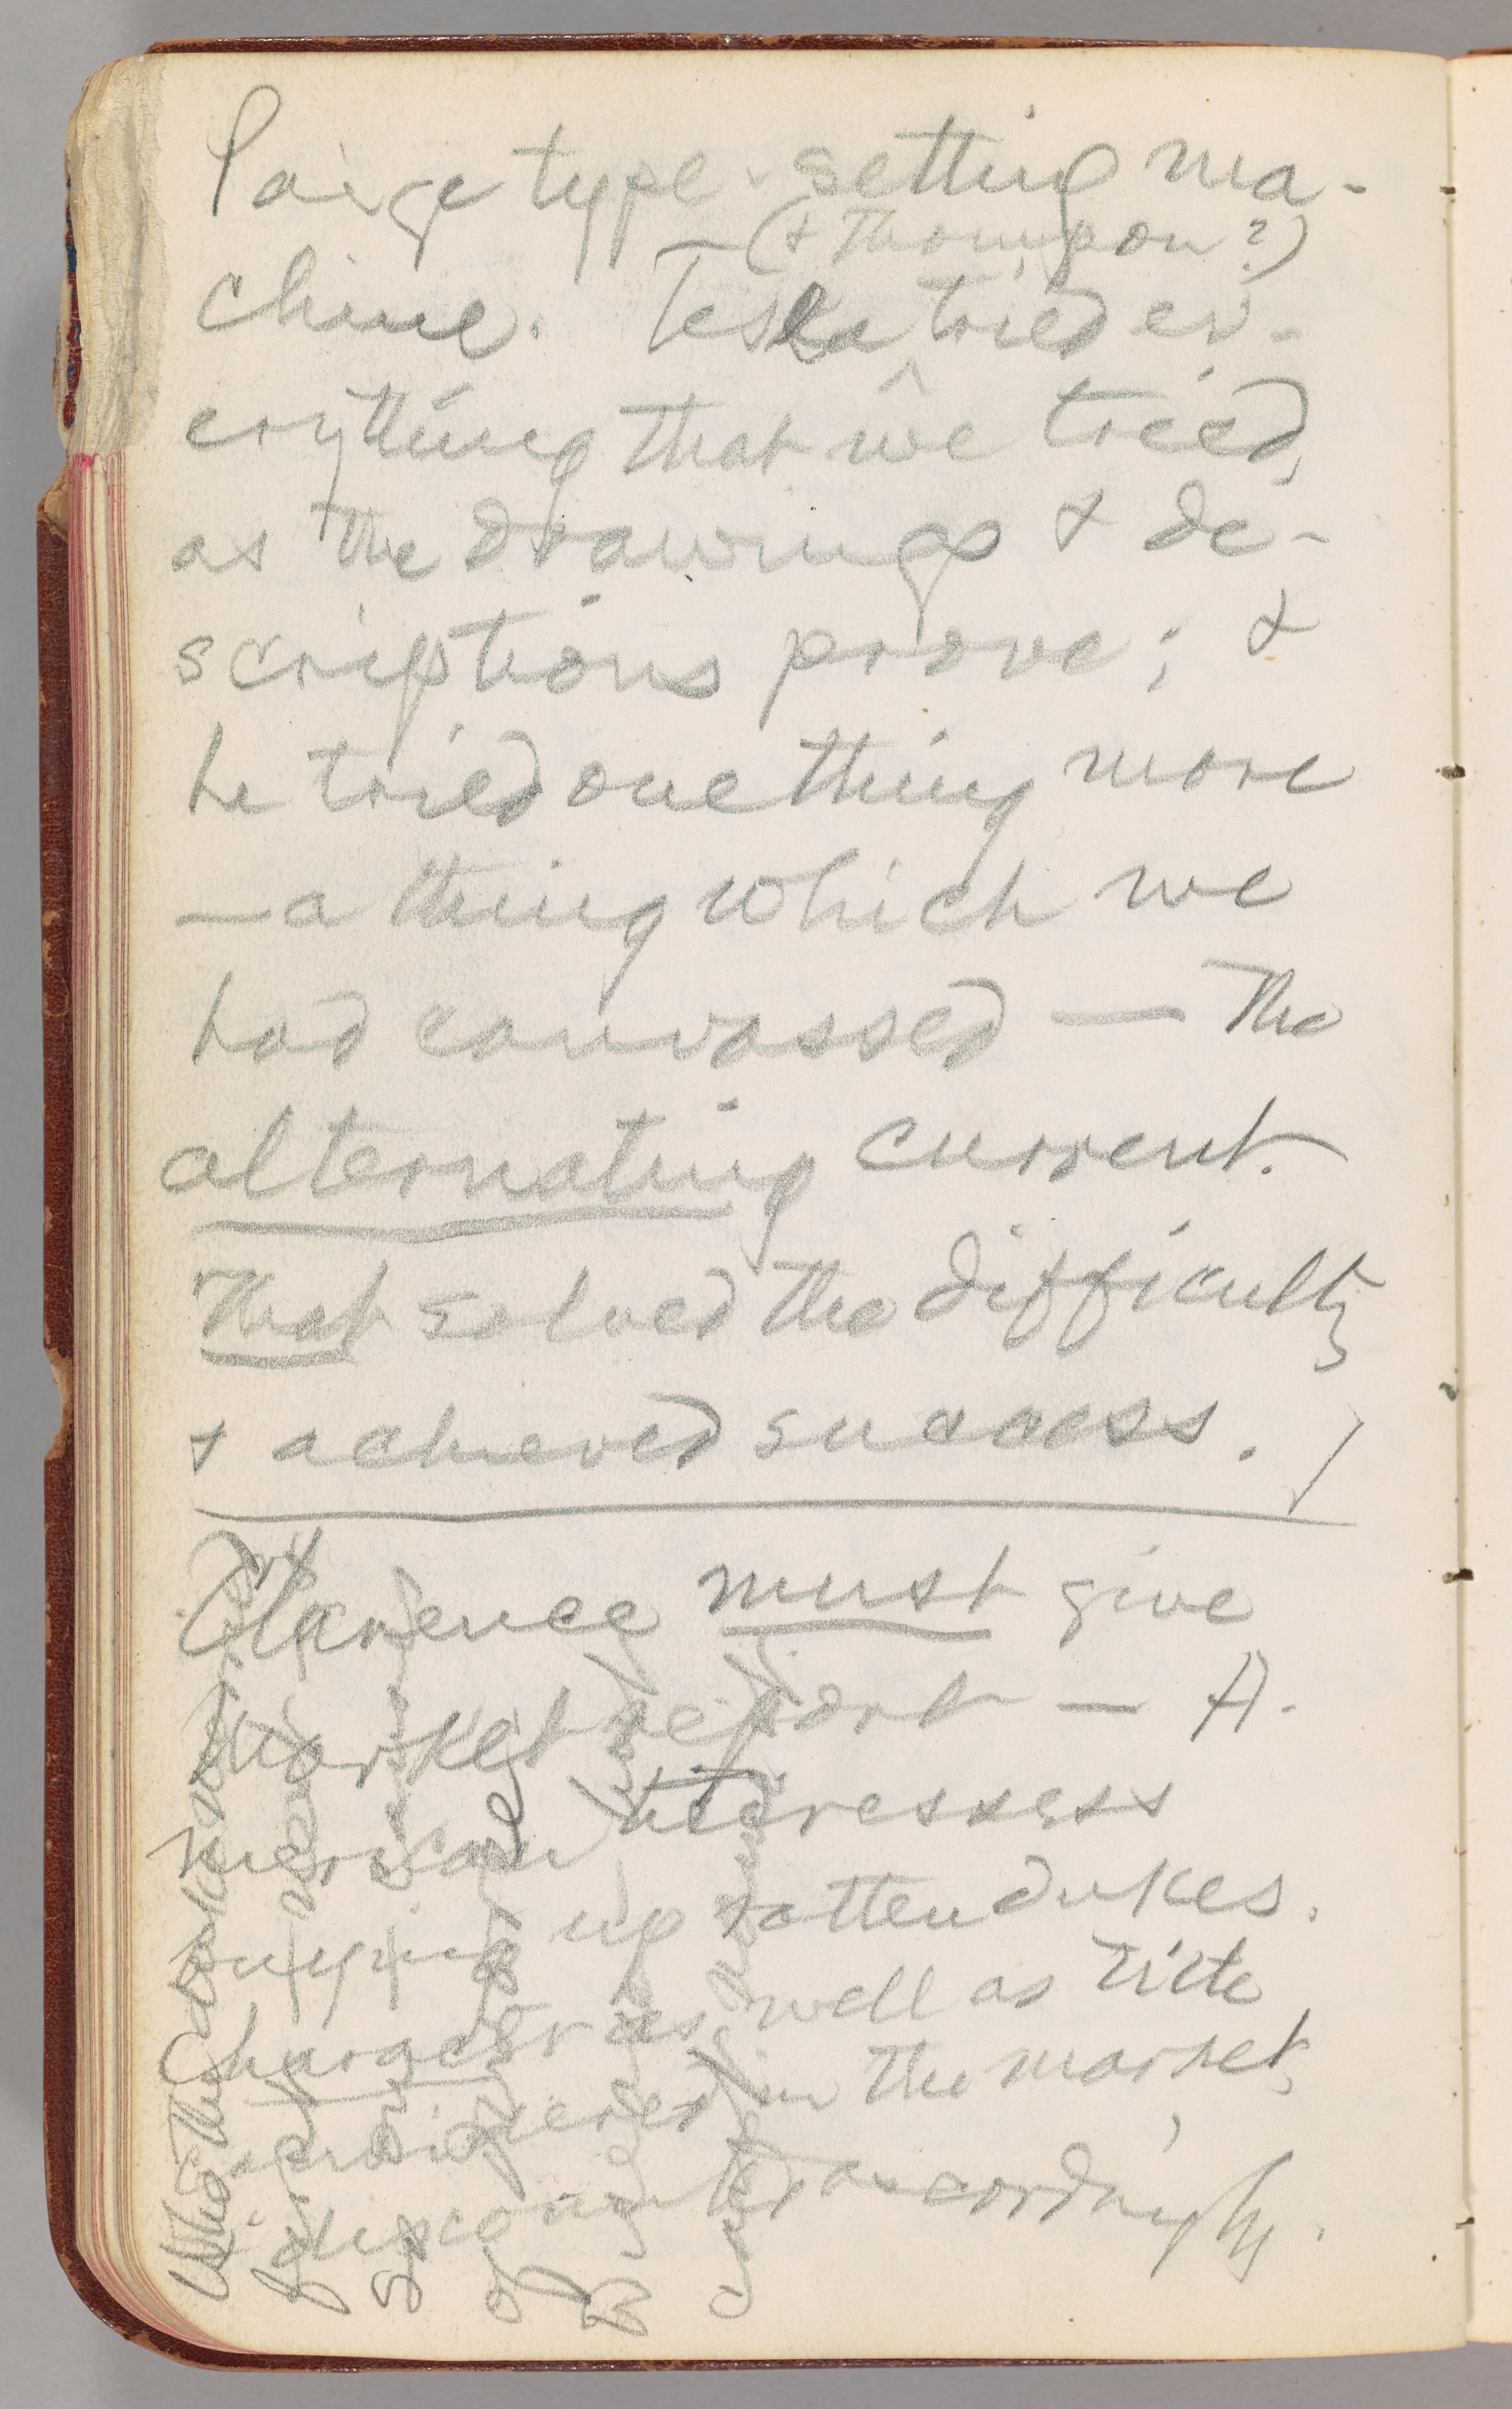 Paige type-setting ma-
(& Thompson?)
chine. Tesla ^ tried ev-
erything that we tried,
as the drawings & de-
scriptions prove; &
he tried one thing more
—a thing which we
had canvassed — the
alternating current.
That solved the difficulty
& achieved success.
Clarence must give
market report — A-
merican heiresses
buying up rotten dukes.
Character as well as title
considered in the market,
& discounted accordingly.